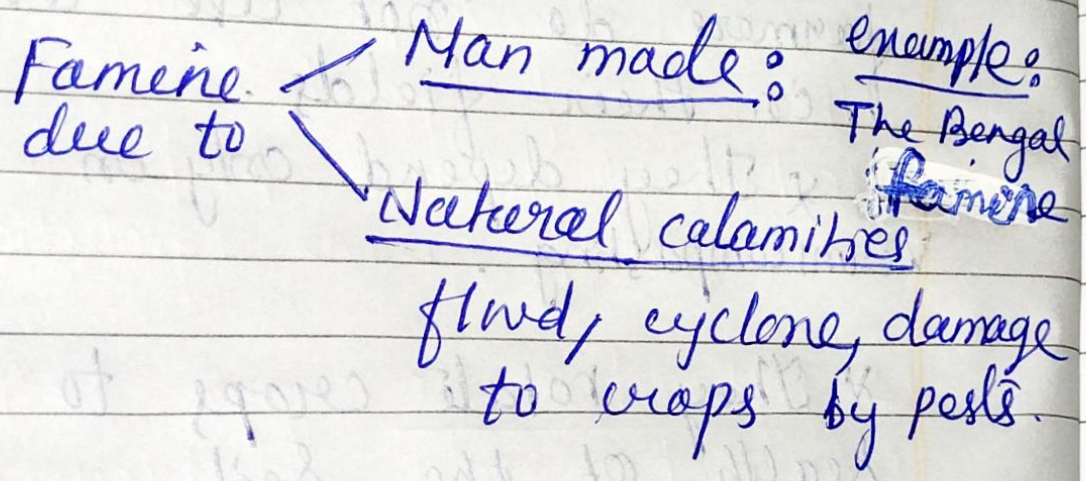 Famine due to
Man made: example:
The Bengal
famine
Natural calamities
flood, cyclone, damage
to crops by pests.